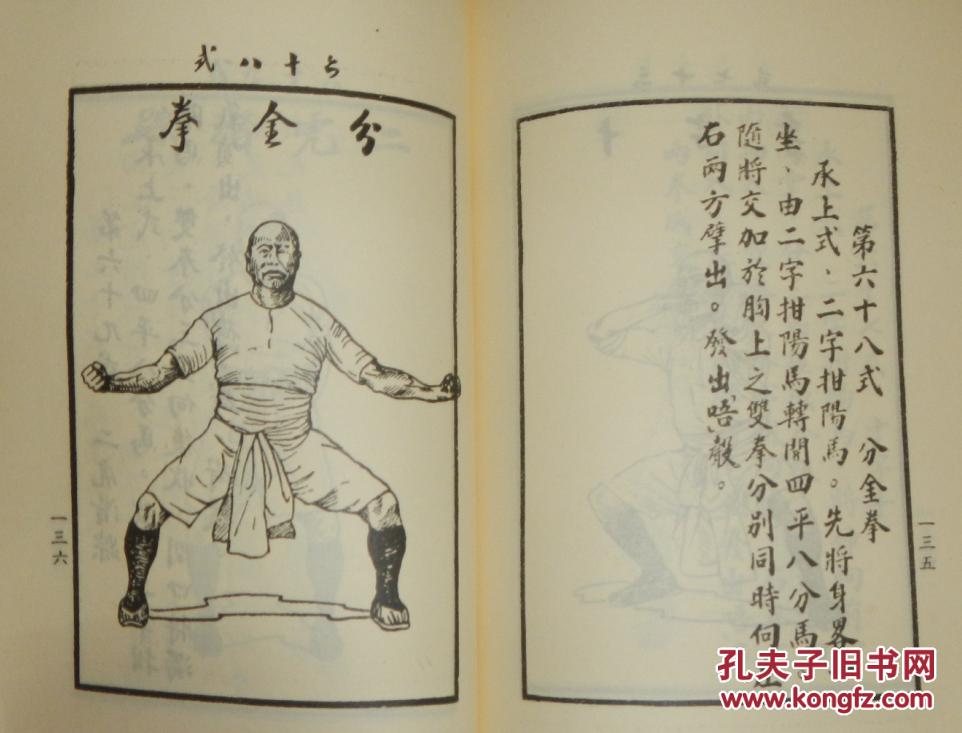 第六十八式　分金拳
承上式、二字拑陽馬。先將身畧
坐、由二字拑陽馬轉開四平八分馬、
隨將交加於胸上之雙拳分別同時向左
右兩方擘出。發出「唔」聲。
一三五
六十八式
分金拳
一三六
孔夫子旧书网
www.kongfz.com